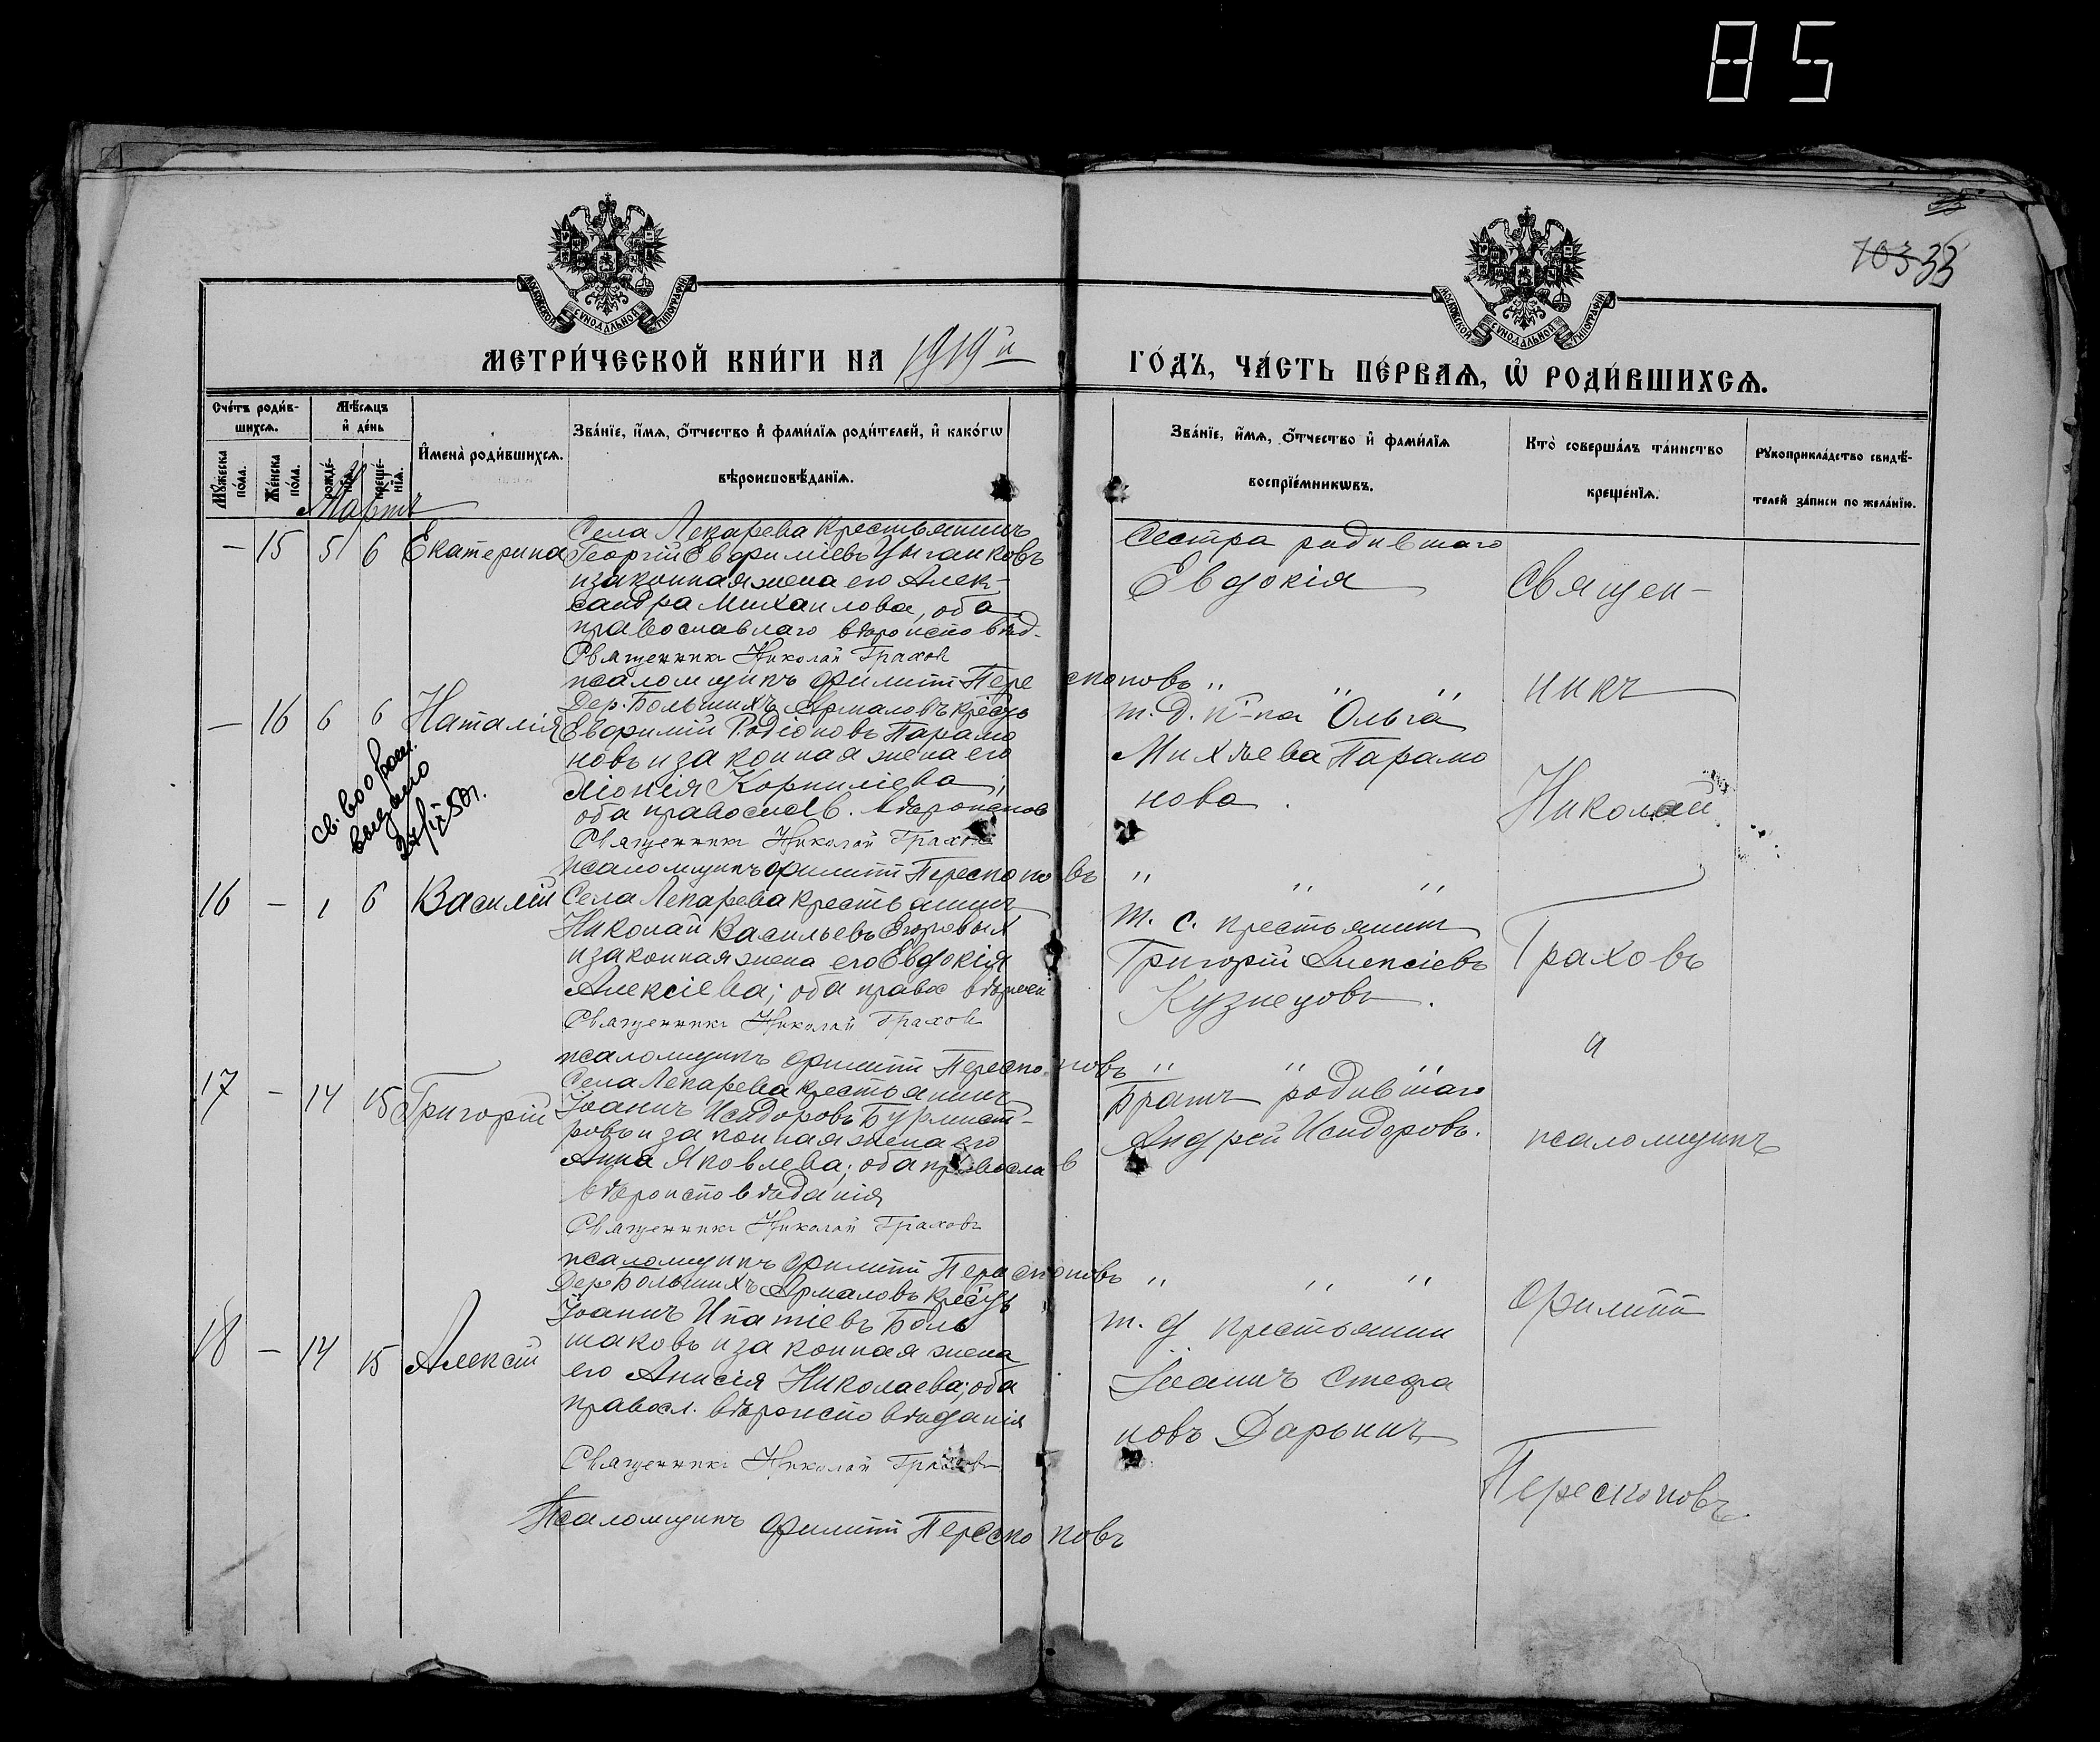 85
33
103 33
МОСКОВСКОЙ СѴНОДАЛЬНОЙ ТИПОГРАФІИ
МОСКОВСКОЙ СѴНОДАЛЬНОЙ ТИПОГРАФІИ
МЕТРИ́ЧЕСКОЙ КНИ́ГИ НА 1919й
ГО́ДЪ, ЧА́СТЬ ПЕ́РВАѦ, Ѡ РОДИ́ВШИХСѦ.
Сче́тъ роди́в-
шихсѧ.
Мѣ́сѧцъ
и́ де́нь
Мꙋ́жеска
по́ла.
Же́нска
по́ла.
рожде́-
нїѧ.
креще́-
нїѧ.
И҆мена̀ роди́вшихсѧ.
Зва́нїе, и҆́мѧ, ѻ҆́тчество и҆ фами́лїѧ роди́телей, и҆ како́гѡ
вѣроисповѣ́данїѧ.
Зва́нїе, и҆́мѧ, ѻ҆́тчество и҆ фами́лїѧ
воспрїе́мникѡвъ.
Кто̀ соверша́лъ та́инство
креще́нїѧ.
Рꙋкоприкла́дство свидѣ́-
телей за́писи по жела́нїю.
Мартъ
— 15 5 6 Екатерина
Села Лекарева крестьянинъ
Георгій Евфиміевъ Цыганковъ
и законная жена его Алек-
сандра Михаилова, оба
православнаго вѣроисповѣд.
Священникъ Николай Грахов
псаломщикъ Филиппъ Пересконовъ „ „ „
Сестра родившаго
Евдокія
Священ-
никъ
Николай
Граховъ
и
псаломщикъ
Филиппъ
Пересконовъ
— 16 6 6 Наталія
св. во о рожд.
выдано
27/IX 50г.
Дер. Большихъ Армаловъ кресть
Евфимій Родіоновъ Парамо
новъ и законная жена его
Хіонія Корниліева,
оба православ. вѣроиспов
Священникъ Николай Грахов
псаломщикъ Филиппъ Пересконовъ „ „ „
т. д. к-ка Ольга
Михѣева Парамо
нова
16 — 1 6 Василій
Села Лекарева крестьянинъ
Николай Васильевъ Егоровых
и законная жена его Евдокія
Алексіева; оба правос
Священникъ Николай Грахов
псаломщикъ Филиппъ Пересконовъ „ „ „
т. с. крестьянинъ
Григорій Алексіевъ
Кузнецовъ.
17 — 14 15 Григорій
Села Лекарева крестьянинъ
Іоаннъ Исидоровъ Бурмист-
ровъ и законная жена его
Анна Яковлева; оба православ
вѣроисповѣданія
Священникъ Николай Граховъ
псаломщикъ Филиппъ Пересконовъ „ „ „
Братъ родившаго
Андрей Исидоровъ.
18 — 14 15 Алексій
Дер. Большихъ Армаловъ кресть
Іоаннъ Ипатіевъ Боль
шаковъ и законная жена
его Анисія Николаева; оба
правосл. вѣроисповѣданія
Священникъ Николай Грахов
Псаломщикъ Филиппъ Пересконовъ
т. д крестьянин
Іоаннъ Стефа
новъ Дарьинъ